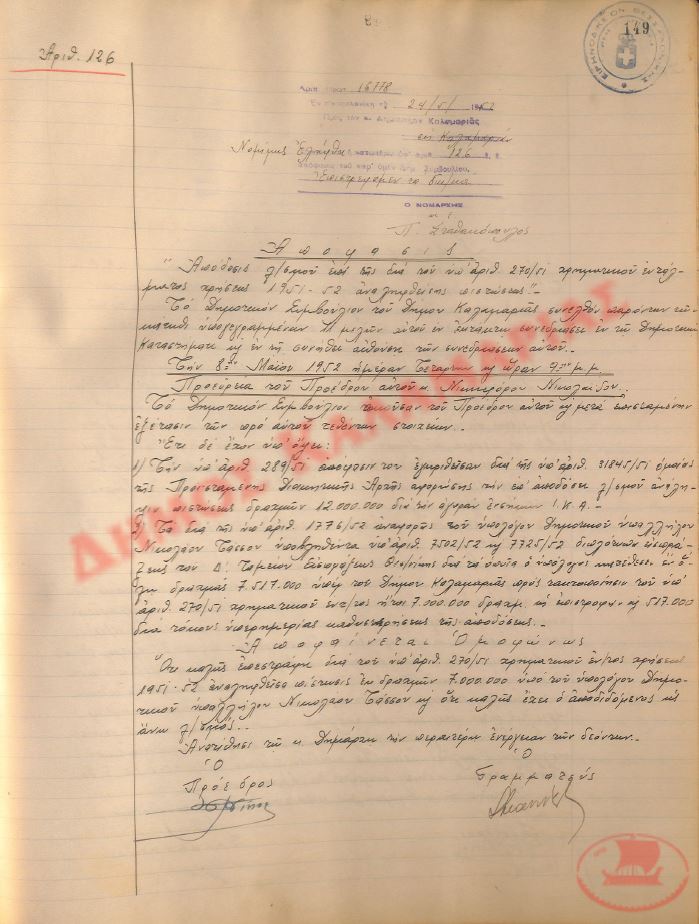 149
ΕΙΡΗΝΟΔΙΚΕΙΟΝ ΘΕΣΣΑΛΟΝΙΚΗΣ
Ἀριθ. 126
Αριθ. Πρωτ. 16778
Ἐν Θεσσαλονίκῃ τῇ 24/5/1952
Πρὸς τὸν κ. Δήμαρχον Καλαμαριᾶς
εἰς Καλαμαριάν
Νομίμως Ἐλήφθη ἡ κατωτέρω ὑπ' ἀριθ. 126 ἐ. ἔ.
ἀπόφασις τοῦ παρ' ὑμῖν Δημ. Συμβουλίου.
Ἐπιστρέφομεν τὰ δικ/κα
Ο ΝΟΜΑΡΧΗΣ
Π. Σταθακόπουλος
Ἀπόφασις
"Ἀπόδοσις λ/σμοῦ ἐπὶ τῆς διὰ τοῦ ὑπ' ἀριθ. 270/51 χρηματικοῦ ἐντάλ-
ματος χρήσεως 1951-52 ἀναληφθείσης πιστώσεως"
Τὸ Δημοτικὸν Συμβούλιον τοῦ Δήμου Καλαμαριᾶς συνελθὸν παρόντων τῶν
κάτωθι ὑπογεγραμμένων 11 μελῶν αὐτοῦ ἐν ἐκτάκτῳ συνεδριάσει ἐν τῷ Δημοτικῷ
Καταστήματι κ ἐν τῇ συνήθει αἰθούσῃ τῶν συνεδριάσεων αὐτοῦ.-
Τὴν 8ην Μαΐου 1952 ἡμέραν Τετάρτην κ ὥραν 9ην μ.μ.
Προεδρεία τοῦ Προέδρου αὐτοῦ κ. Νικηφόρου Νικολαΐδου.-
Τὸ Δημοτικὸν Συμβούλιον ἀκοῦσαν τοῦ Προέδρου αὐτοῦ κ μετὰ ἐπισταμένην
ἐξέτασιν τῶν πρὸ αὐτοῦ τεθέντων στοιχείων.-
Ἔτι δὲ ἔχον ὑπ' ὄψει:
1) Τὴν ὑπ' ἀριθ. 289/51 ἀπόφασίν του ἐγκριθεῖσαν διὰ τῆς ὑπ' ἀριθ. 31845/51 ὁμοίας
τῆς Προϊσταμένης Διοικητικῆς Ἀρχῆς ἀφορώσης τὴν ἐπ' ἀποδόσει λ/σμοῦ ἀνάλη-
ψιν πιστώσεως δραχμῶν 12.000.000 διὰ τὴν ἀγορὰν ἐνσήμων Ι.Κ.Α.-
2) Τὰ διὰ τῆς ὑπ' ἀριθ. 1776/52 ἀναφορᾶς τοῦ ὑπολόγου Δημοτικοῦ ὑπαλλήλου
Νικολάου Τάσσου ὑποβληθέντα ὑπ' ἀριθ. 7502/52 κ 7725/52 διπλότυπα εἰσπρά-
ξεως τοῦ Δ' Ταμείου Εἰσπράξεως Θεσ/νίκης διὰ τὰ ὁποῖα ὁ ὑπόλογος κατέθεσεν ἐν ὅ-
λῳ δραχμὰς 7.517.000 ὑπὲρ τοῦ Δήμου Καλαμαριᾶς πρὸς τακτοποίησιν τοῦ ὑπ'
ἀριθ. 270/51 χρηματικοῦ ἐντ/τος ἤτοι 7.000.000 δραχμ. ὡς ἐπιστροφὴν κ 517.000
διὰ τόκους ὑπερημερίας καθυστερήσεως τῆς ἀποδόσεως.-
Ἀποφαίνεται Ὁμοφώνως
Ὅτι καλῶς ἐπεστράφη διὰ τοῦ ὑπ' ἀριθ. 270/51 χρηματικοῦ ἐν/τος χρήσεως
1951-52 ἀναληφθεῖσα πίστωσις ἐκ δραχμῶν 7.000.000 ὑπὸ τοῦ ὑπολόγου Δημο-
τικοῦ ὑπαλλήλου Νικολάου Τάσσου κ ὅτι καλῶς ἔχει ὁ ἀποδιδόμενος ὡς
ἄνω λ/σμός.-
Ἀνατίθησι τῷ κ. Δημάρχῳ τὴν περαιτέρω ἐνέργειαν τῶν δεόντων.-
Ὁ Ὁ
Πρόεδρος Γραμματεύς
ΔΗΜΟΣ ΚΑΛΑΜΑΡΙΑΣ